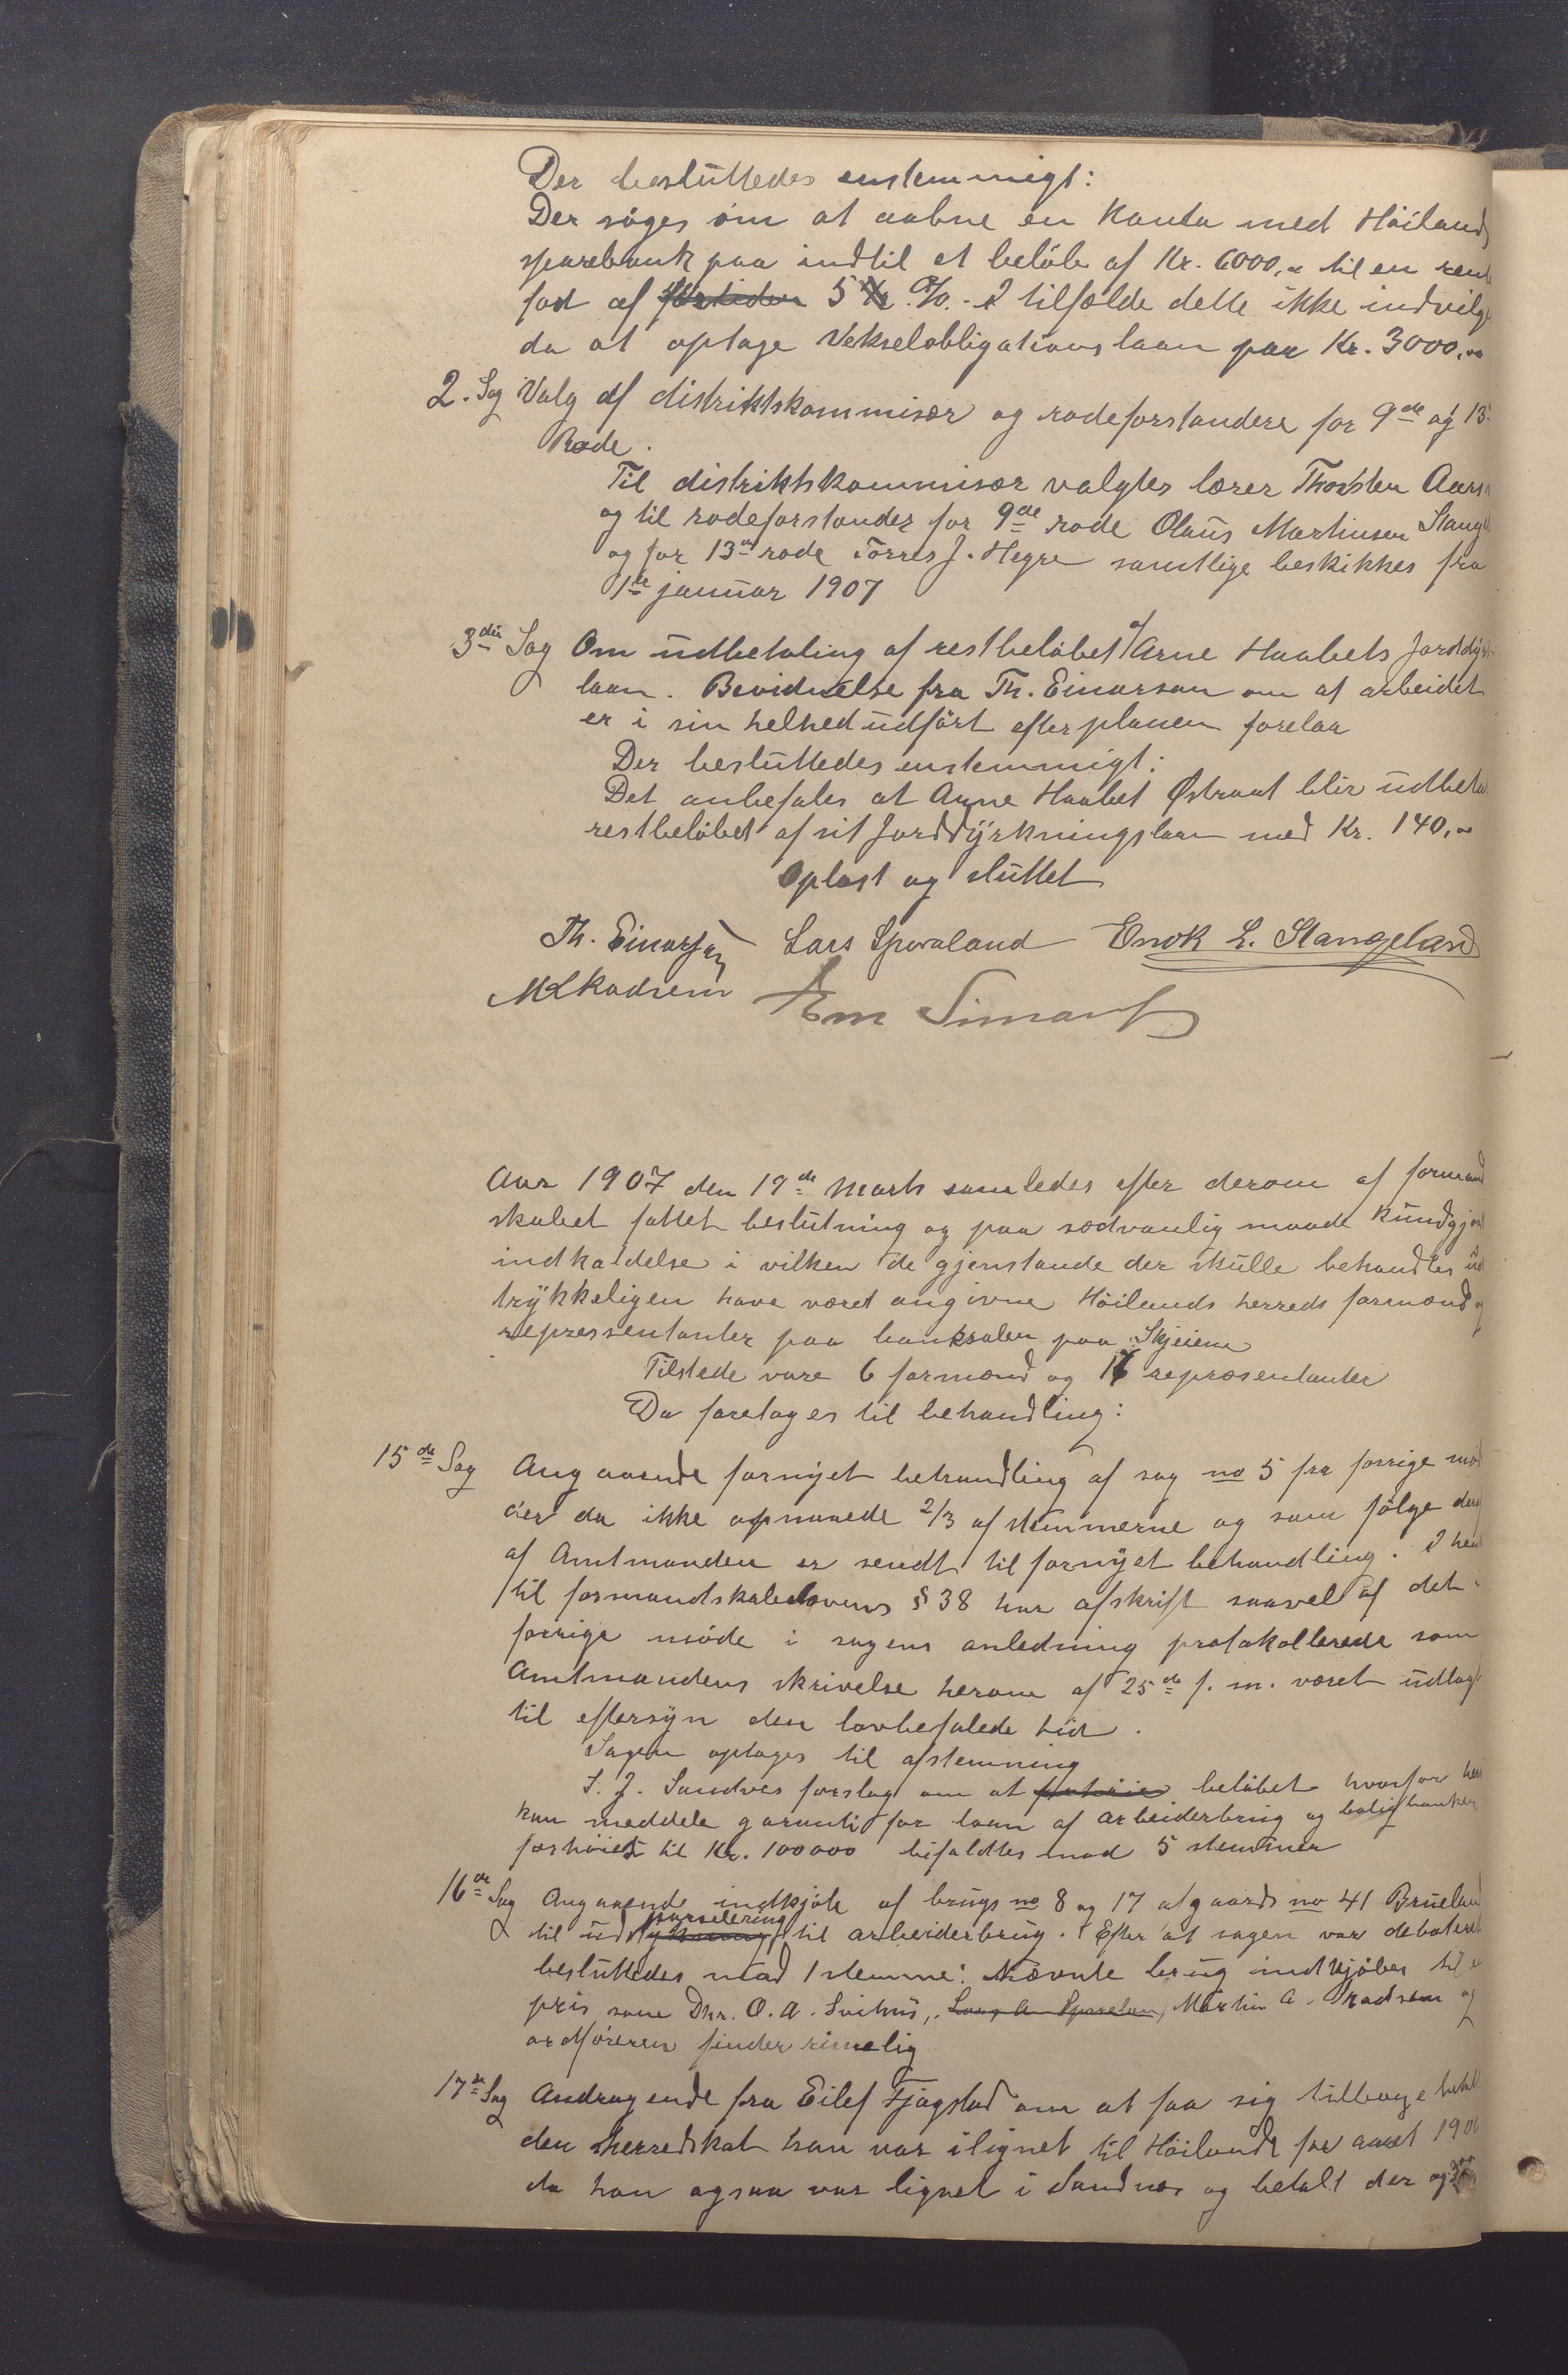 Der besluttedes enstemmigt:
Der søges om at aabne en Konto med Höilands
sparebank paa indtil et beløb af Kr. 6000,00 til en rente
fod af fortiden 5 % - I tilfælde dette ikke indvilges
da at optage Vekselobligationslaan paa Kr. 3000,00
2. Sag Valg af distriktskommisær og rodeforstandere for 9de og 13.
Rode.
Til distriktskommisær valgtes lærer Thorsten
og til rodeforstander for 9de rode Olaus Martinsen Stangel
og for 13de rode Torres J. Hegre samtlige beskikkes fra
1ste januar 1907
3die Sag Om udbetaling af restbeløbet af Arne Haabets Jorddyrk
laan. Bevidnelse fra Th. Einarsen om at arbeidet
er i sin helhed udført efter planen forelaa
Der besluttedes enstemmigt:
Det anbefales at Arne Haabet Østraat blir udbetalt
restbeløbet af sit Jorddyrkningslaan med Kr. 140,00
Oplæst og sluttet
Th. Einarsen Lars Sporaland Enok L. Stangeland
M Skadsem
Aar 1907 den 19de Marts samledes efter derom af formand
skabet fattet beslutning og paa sædvanlig maade kundgjort
indkaldelse i vilken de gjenstande der skulle behandles ud
trykkeligen have været angivne Höilands herreds formænd og
repressentanter paa banksalen paa Skjeiene
Tilstede vare 6 formænd og 17 repræsentanter
Da foretages til behandling:
15de Sag Angaaende fornyet behandling af sag no 5 fra forrige mø
der da ikke opnaaede 2/3 af stemmerne og som følge deraf
af Amtmanden er sendt til fornyet behandling. I hen
til formandskabslovens § 38 har afskrift saavel af det i
forrige møde i sagens anledning protokollerede som
Amtmandens skrivelse herom af 25de f. m. været udlagt
til eftersyn den lovbefalede tid.
Sagen optages til afstemning
S. J. Sandves forslag om at forhøie beløbet hvorfor her
kan meddele garanti for laan af arbeiderbrug og boligbanken
forhøiet til Kr. 100000 bifaldtes mod 5 stemmer
16de Sag Angaaende indkjøb af brugs no 8 og 17 af gaards no 41 Brueland
parselering
til ud til arbeiderbrug. Efter at sagen var debateret
besluttedes mod 1 stemme: Nævnte brug indkjøbes til en
pris som Dhr. O. A. Svihus, Lars A Sporaland, Martin A. Skadsem og
ordføreren finder rimelig
17de Sag Andragende fra Eilef Fjogstad om at faa sig tilbagebetalt
den herredskat han var ilignet til Höilands for aaret 1906
da han ogsaa var lignet i Sandnes og betalt der og